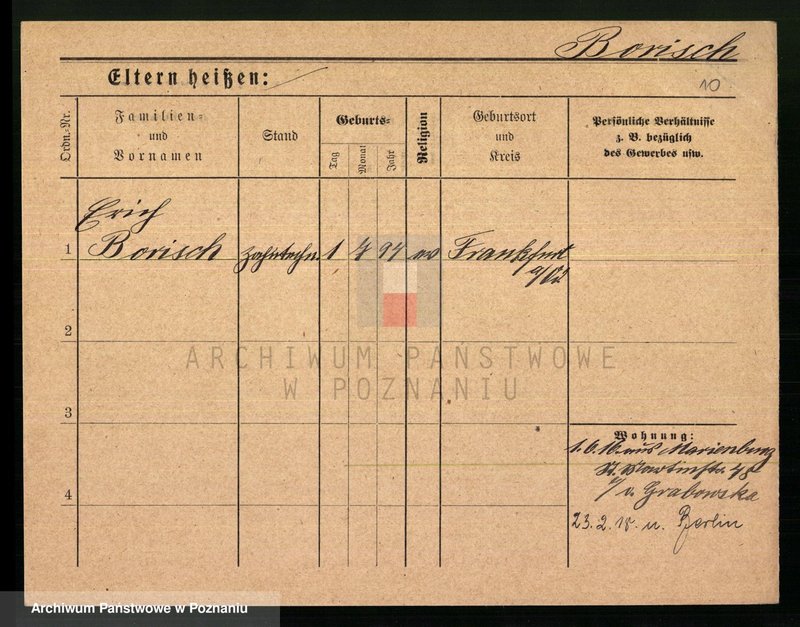 Borisch
Eltern heißen:
10
Ordn.-Nr.
Familien-
und
Vornamen
Stand
Geburts-
Tag
Monat
Jahr
Religion
Geburtsort
und
Kreis
Persönliche Verhältnisse
z. B. bezüglich
des Gewerbes usw.
Erich
1 Borisch Zahntechn. 1 94 ev Frankfurt
a/Od
2
ARCHIWUM PAŃSTWOWE
W POZNANIU
3
Wohnung:
1.6.16. aus Marienburg
St. Martinstr.
Grabowska
4
23.2. n. Berlin
Archiwum Państwowe w Poznaniu